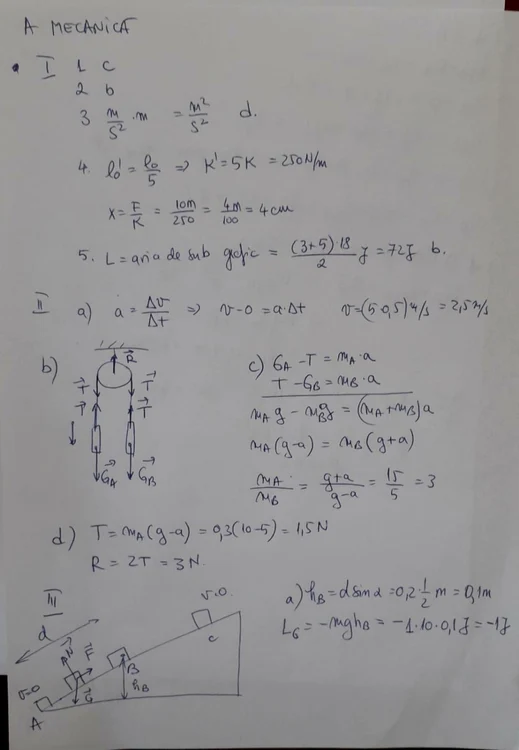 A MECANICA
I 1 c
2 b
3 m/s² · m = m²/s² d.
4. l₀' = l₀/5 ⇒ K' = 5K = 250N/m
x = F/K = 10m/250 = 4m/100 = 4cm
5. L = aria de sub grafic = (3+5)·18/2 J = 72J b.
II a) a = Δv/Δt ⇒ v-0 = a·Δt v=(5·0,5)m/s = 2,5m/s
b)
R
T T
T T
G_A G_B
c) G_A - T = m_A·a
T - G_B = m_B·a
m_A g - m_B g = (m_A + m_B)a
m_A(g-a) = m_B(g+a)
m_A/m_B = g+a/g-a = 15/5 = 3
d) T = m_A(g-a) = 0,3(10-5) = 1,5N
R = 2T = 3N.
III
a) h_B = d sin α = 0,2·1/2 m = 0,1m
L_G = -mgh_B = -1·10·0,1J = -1J
v=0
d
N F
C
B
v=0
G h_B
A